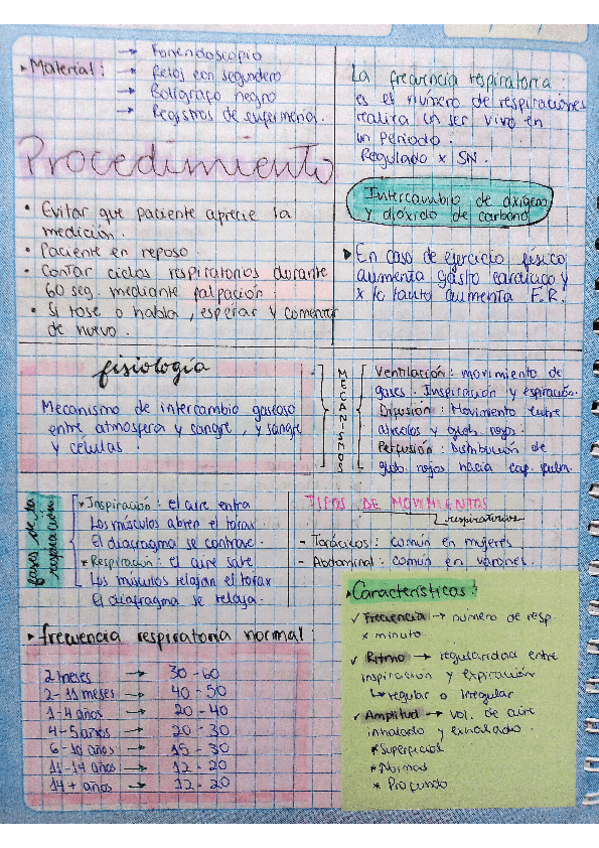 Material:
→ Fonendoscopio
→ Reloj con segundero
→ Bolígrafo negro
→ Registros de enfermería.
La frecuencia respiratoria:
es el número de respiraciones
realiza un ser vivo en
un periodo.
Regulado x SN.
Intercambio de oxígeno
y dióxido de carbono
▸ En caso de ejercicio físico
aumenta gasto cardiaco y
x lo tanto aumenta F.R.
Procedimiento
• Evitar que paciente aprecie la
medición.
• Paciente en reposo.
• Contar ciclos respiratorios durante
60 seg. mediante palpación.
• Si tose o habla, esperar y comenzar
de nuevo.
fisiología
Mecanismo de intercambio gaseoso
entre atmosfera y sangre, y sangre
y células
MECANISMOS
Ventilación: movimiento de
gases. Inspiración y espiración.
Difusión: Movimiento entre
alveolos y glob. rojos.
Perfusión: Distribución de
glob. rojos hacia cap. pulm.
fases de la
respiración
• Inspiración: el aire entra
Los músculos abren el torax
El diafragma se contrae.
• Respiración: el aire sale
Los músculos relajan el torax
El diafragma se relaja.
TIPOS DE MOVIMIENTOS
respiratorios
- Torácicos: común en mujeres
- Abdominal: común en varones.
▸ frecuencia respiratoria normal:
2 meses → 30-60
2-11 meses → 40-50
1-4 años → 20-40
4-5 años → 20-30
6-10 años → 15-30
11-14 años → 12-20
14+ años → 12-20
▸ Características:
✓ Frecuencia → número de resp.
x minuto
✓ Ritmo → regularidad entre
inspiración y espiración
↳ regular o irregular
✓ Amplitud → vol. de aire
inhalado y exhalado
* Superficial
* Normal
* Profundo